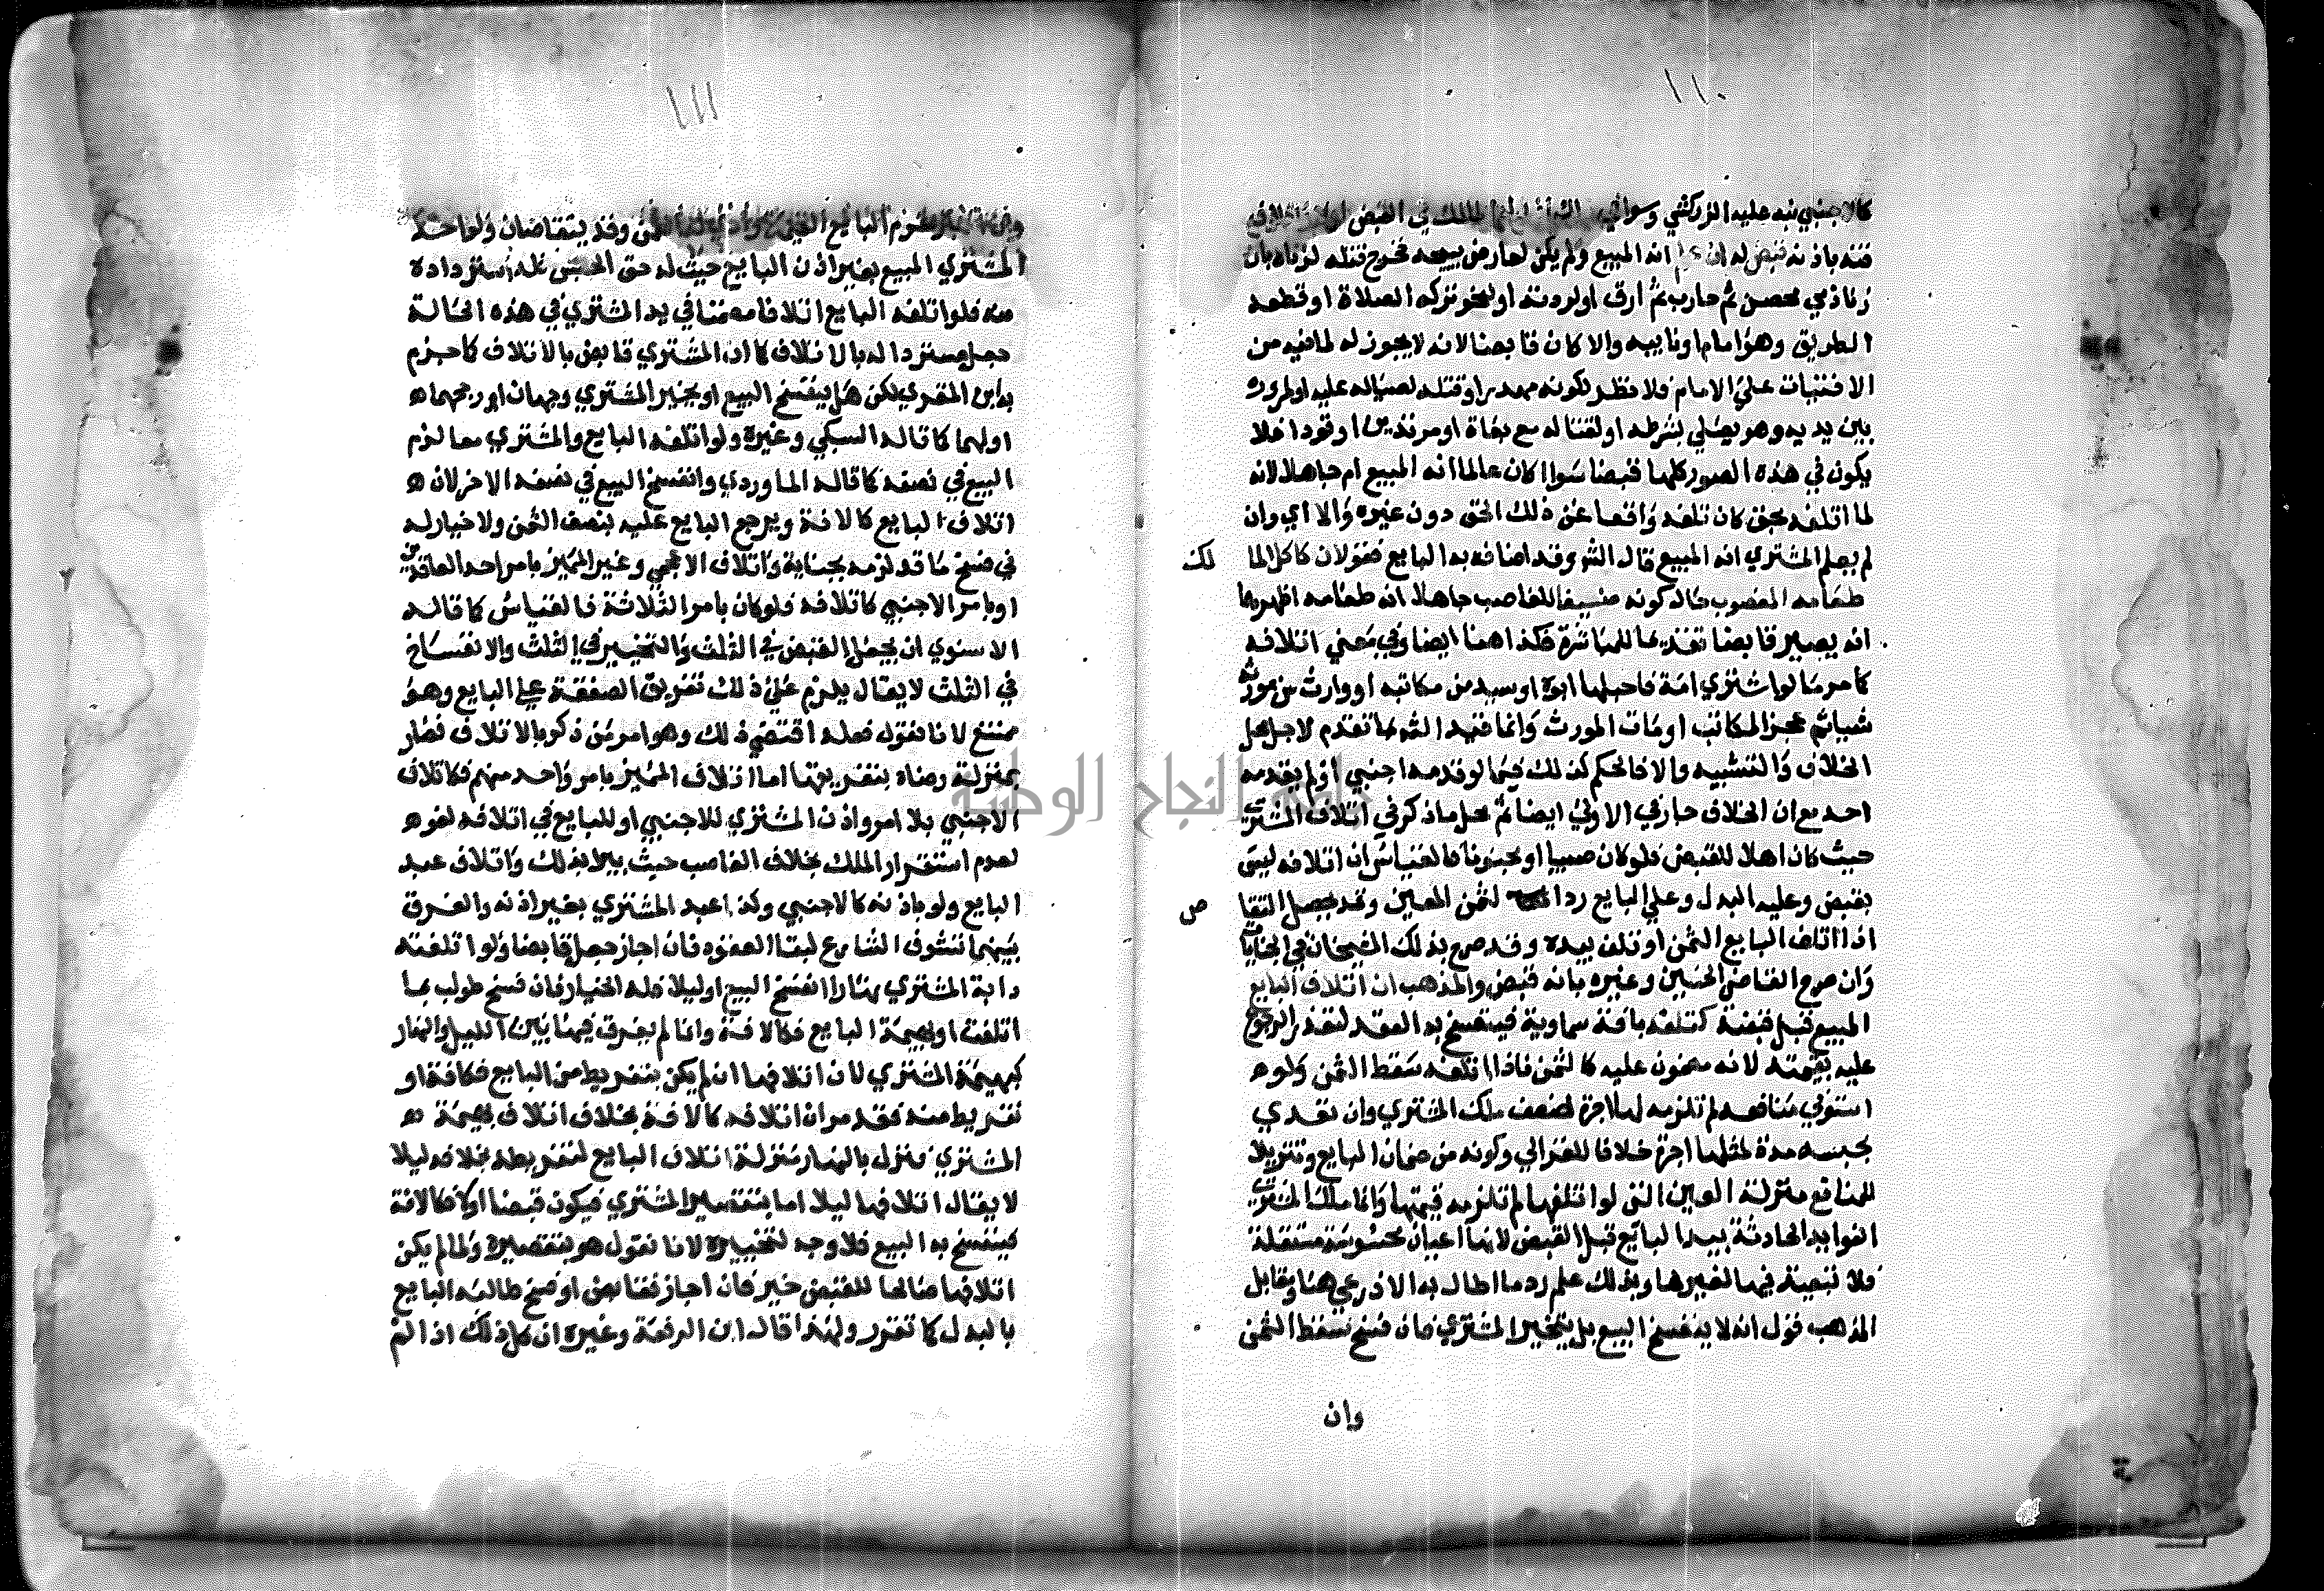 ١١٠
كالاجنبي نبه عليه الزركشي وسوا في الملك في القبض
فتنه باذنه قبض له ان انه المبيع ولم يكن لعارض يبيحه فخرج قتله لزناه بان
زنا ذمي محصن ثم حارب ثم ارق اولردته اولنحو تركه الصلاة اوقطعه
الطريق وهو امام اونايبه والا كان قابضا لانه لايجوز له لما فيه من
الافتيات علي الامام فلا نظر لكونه مهدرا وقتله لصياله عليه اولمروره
بين يديه وهو يصلي بشرطه اولقتاله مع بغاة اومرتدين اوقودا فلا
يكون في هذه الصور كلها قبضا سواا كان عالما انه المبيع ام جاهلا لانه
لما اتلفه بحق كان تلفه واقعا عن ذلك الحق دون غيره والا اي وان
لم يعلم المشتري انه المبيع قال الشو وقد اضافه به البايع فقولان كاكل الما لك
طعامه المغصوب حال كونه ضيفا للغاصب جاهلا انه طعامه اظهرهما
انه يصير قابضا تقديما للمباشرة فكذا هنا ايضا وفي معني اتلافه
كامر مالو اشتري امة فاحبلها ابوه اوسيد من مكاتبه او وارث من مورثه
شيا ثم عجز المكاتب اومات المورث وانما قيد الشو بما تقدم لاجل محل
الخلاف والتشبيه والا فالحكم كذلك فيما لو قدمه اجنبي اولم يقدمه
احد مع ان الخلاف جار في الاولي ايضا ثم محل ماذكر في اتلاف المشتري
حيث كان اهلا للقبض فلو كان صبيا اومجنونا فالقياس ان اتلافه ليس
بقبض وعليه البدل وعلي البايع رد الثمن المعين وقد يحصل التقا ص
اذا اتلف البايع الثمن اوتلف بيده وقد صرح بذلك الشيخان في الجنايات
وان صرح القاضي الحسين وغيره بانه قبض والمذهب ان اتلاف البايع
المبيع قبل قبضه كتلفه بافة سماوية فينفسخ به العقد لتعذر الرجوع
عليه بقيمته لانه مضمون عليه كالثمن فاذا اتلفه سقط الثمن ولو
استوفي منافعه لم تلزمه لها اجرة لضعف ملك المشتري وان تعدي
بحبسه مدة لمثلها اجرة خلافا للغزالي وكونه من ضمان البايع وتنزيلا
للمنافع منزلة العين التي لو اتلفها لم تلزمه قيمتها وانما ملك المشتري
الفوايد الحادثة بيد البايع قبل القبض لانها اعيان محسوسة مستقلة
فلا تبعية فيها لغيرها وبذلك علم رد ما اطال به الاذرعي هنا ومقابل
المذهب قول انه لا ينفسخ البيع بل يتخير المشتري فان فسخ سقط الثمن
وان
١١١
البايع وقد يتقاصان ولو اخذ
المشتري المبيع بغير اذن البايع حيث له حق الحبس فله استرداده
منه فلو اتلفه البايع اتلافا مضمنا في يد المشتري في هذه الحالة
جعل مستردا له بالاتلاف كما ان المشتري قابض بالاتلاف كما جزم
به ابن المقري لكن هل ينفسخ البيع او يخير المشتري وجهان ارجحهما ه
اولهما كما قاله السبكي وغيره ولو اتلفه البايع والمشتري معا لزم
البيع في نصفه كما قاله الماوردي وانفسخ البيع في نصفه الاخر لان ه
اتلاف البايع كالافة ويرجع البايع عليه بنصف الثمن ولا خيار له
في فسخ ما قد لزمه بجناية واتلاف الاعجمي وغير المميز بامر احد العاقدين
او بامر الاجنبي كاتلافه فلو كان بامر الثلاثة فالقياس كما قاله
الاسنوي ان يحصل القبض في الثلث والتخيير في الثلث والانفساخ
في الثلث لا يقال يلزم علي ذلك تفريق الصفقة علي البايع وهو
ممتنع لانا نقول فعله اقتضي ذلك وهو امر من ذكر بالاتلاف فصار
بمنزلة رضاه بتفريقها اما اتلاف المميز بامر واحد منهم فكاتلاف
الاجنبي بلا امر واذن المشتري للاجنبي او للبايع في اتلافه لغو ه
لعدم استقرار الملك بخلاف الغاصب حيث يبرا بذلك واتلاف عبد
البايع ولو باذنه كالاجنبي وكذا عبد المشتري بغير اذنه والفرق
بينهما تشوف الشارع لبقا العقود فان اجاز جعل قابضا ولو اتلفته
دابة المشتري نهارا انفسخ البيع اوليلا فله الخيار فان فسخ طولب بما
اتلفت اوبهيمة البايع فكالافة وانما لم يفرق فيها بين الليل والنهار
كبهيمة المشتري لان اتلافها ان لم يكن بتفريط من البايع فكافة او
بتفريط منه فقد مر ان اتلافه كالافة بخلاف اتلاف بهيمة ه
المشتري فنزل بالنهار منزلة اتلاف البايع لتفريطه بخلافه ليلا
لا يقال اتلافها ليلا اما بتقصير المشتري فيكون قبضا اولا فكالافة
فينفسخ به البيع فلا وجه لتخييره لانا نقول هو بتقصيره ولما لم يكن
اتلافها صالحا للقبض خير فان اجاز فقابض او فسخ طالبه البايع
بالبدل كما تقرر ولهذا قال ابن الرفعة وغيره ان محل ذلك اذا لم
جامعة النجاح الوطنية